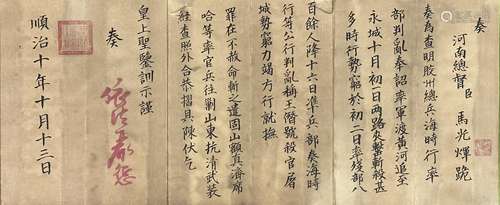 奏
河南總督臣 馬光輝跪
奏為查明膠州總兵海時行率
部判亂奉詔率軍渡黃河追至
永城十月初一日兩路夾擊斬殺甚
多時行勢窮於初二日率殘部八
百餘人降十六日準兵部奏海時
行等公行判亂稱王僭號殺官屠
城勢窮力竭方行就撫
罪在不赦命斬之遣固山額真濟席
哈等率官兵往剿山東抗清武裝
經查照外合恭摺具陳伏乞
皇上聖鑒訓示謹
奏
順治十年十月十三日